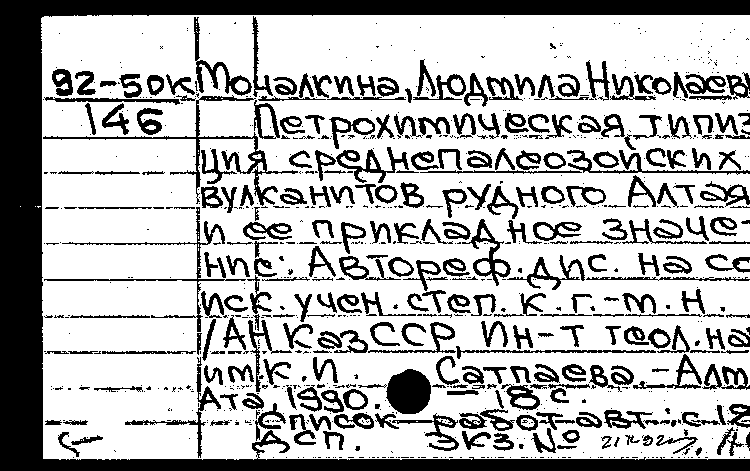 92-50к Мочалкина, Людмила Николаев
146 Петрохимическая типиз
ция среднепалеозойских
вулканитов рудного Алтая
и ее прикладное значе-
ние: Автореф. дис. на со
иск. учен. степ. к. г.-м. н.
/АН КазССР, Ин-т геол. на
им. К. И. Сатпаева. - Алм
Ата, 1990. - 18 с.
Список работ авт.: с. 18
ДСП. Экз. №